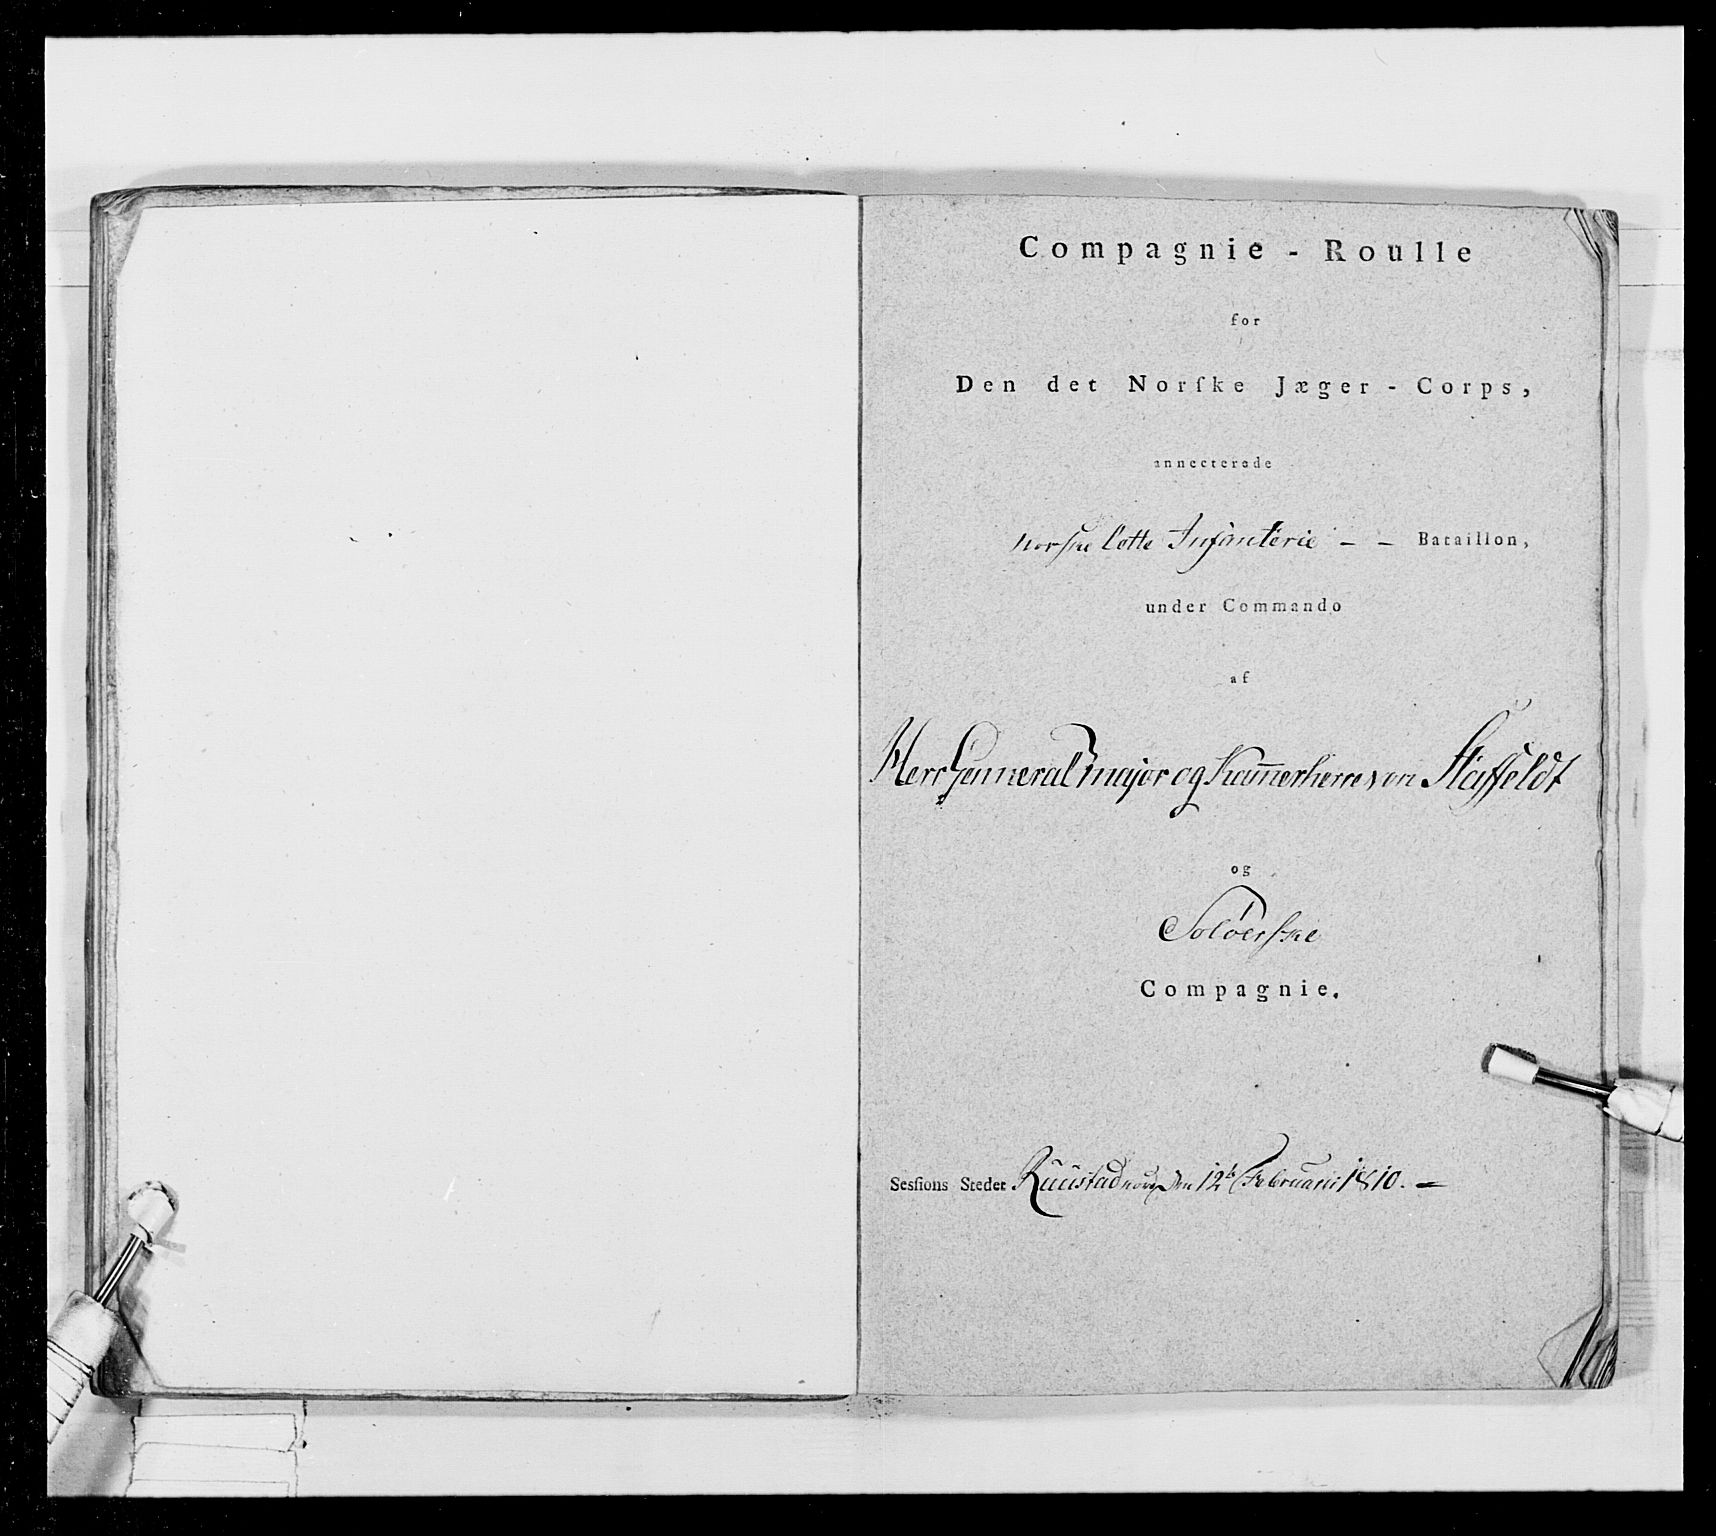 Compagnie - Roulle
for
Den det Norſke Jæger - Corps,
annecterede
norske Lette Infanterie - - Bataillon,
under Commando
af
Herr Genneral Major og Kammerherre von Staffeldt
og
Soløerske
Compagnie.
Sesſions Stedet Ruustad den 12te Februarii 1810. -